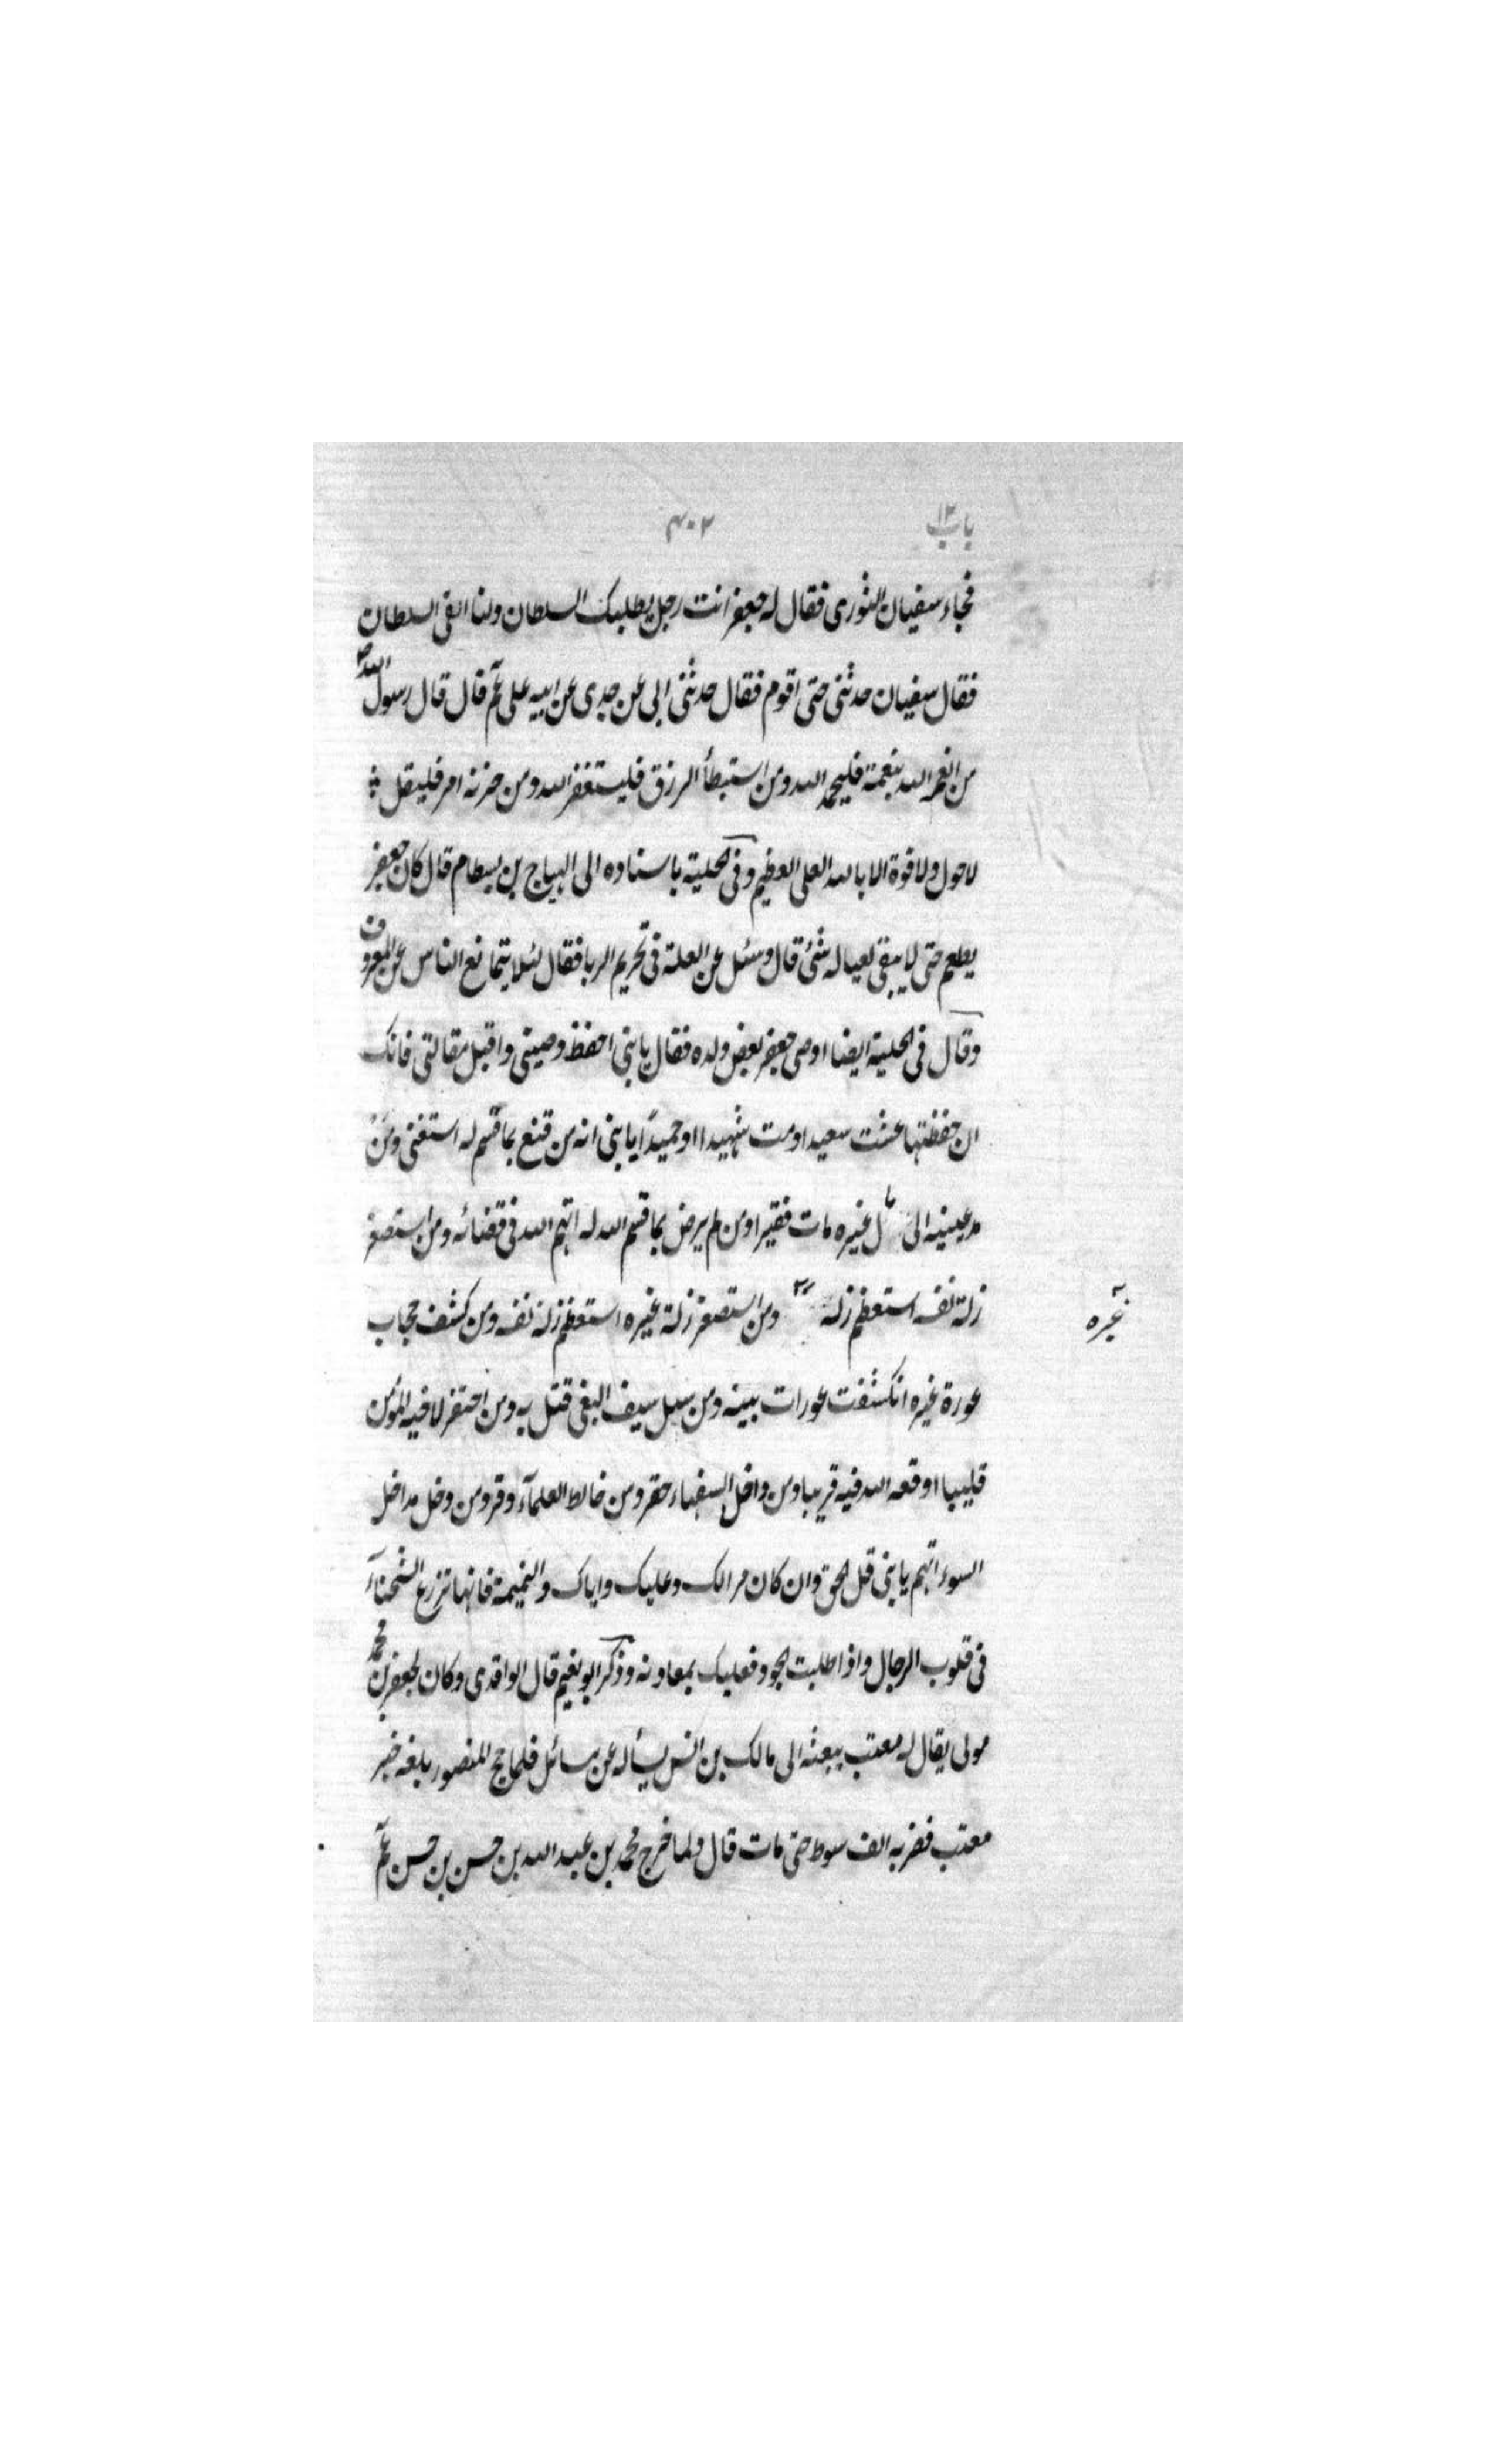 باب ١٢
٤٠٢
فجاء سفيان الثورى فقال له جعفر انت رجل يطلبك السلطان وانا اتقى السلطان
فقال سفيان حدثنى حتى اقوم فقال حدثنى ابى عن جدى عن ابيه على عم قال قال رسول الله ص
من انعم الله بنعمة فليحمد الله ومن استبطأ الرزق فليستغفر الله ومن حزنه امر فليقل
لاحول ولا قوة الا بالله العلى العظيم وفى الحلية باسناده الى الهياج بن بسطام قال كان جعفر
يطعم حتى لا يبقى لعياله شئ قال وسئل عن العلة فى تحريم الربا فقال لئلا يتمانع الناس عن المعروف
وقال فى الحلية ايضا اوصى جعفر بعض ولده فقال يا بنى احفظ وصيتى واقبل مقالتى فانك
ان حفظتها عشت سعيدا ومت شهيدا او حميدًا يا بنى انه من قنع بما قسم له استغنى ومن
مد عينيه الى مال غيره مات فقيرا ومن لم يرض بما قسم الله له اتهم الله فى قضائه ومن استصغر
زلة نفسه استعظم زلة ومن استصغر زلة غيره استعظم زلة نفسه ومن كشف حجاب
غيره
عورة غيره انكشفت عورات بيته ومن سل سيف البغى قتل به ومن احتفر لاخيه المؤمن
قليبا اوقعه الله فيه قريبا ومن داخل السفهاء حقر ومن خالط العلمآء وقر ومن دخل مداخل
السوء اتهم يا بنى قل الحق وان كان مرا لك وعليك واياك والنميمة فانها تزرع الشحنآء
فى قلوب الرجال واذا طلبت الجود فعليك بمعادنه وذكر ابو نعيم قال الواقدى وكان لجعفر بن محمد
مولى يقال له معتب يبعثه الى مالك بن انس يسأله عن مسائل فلما حج المنصور بلغه خبر
معتب فضربه الف سوط حتى مات قال ولما خرج محمد بن عبد الله بن حسن بن حسن عم